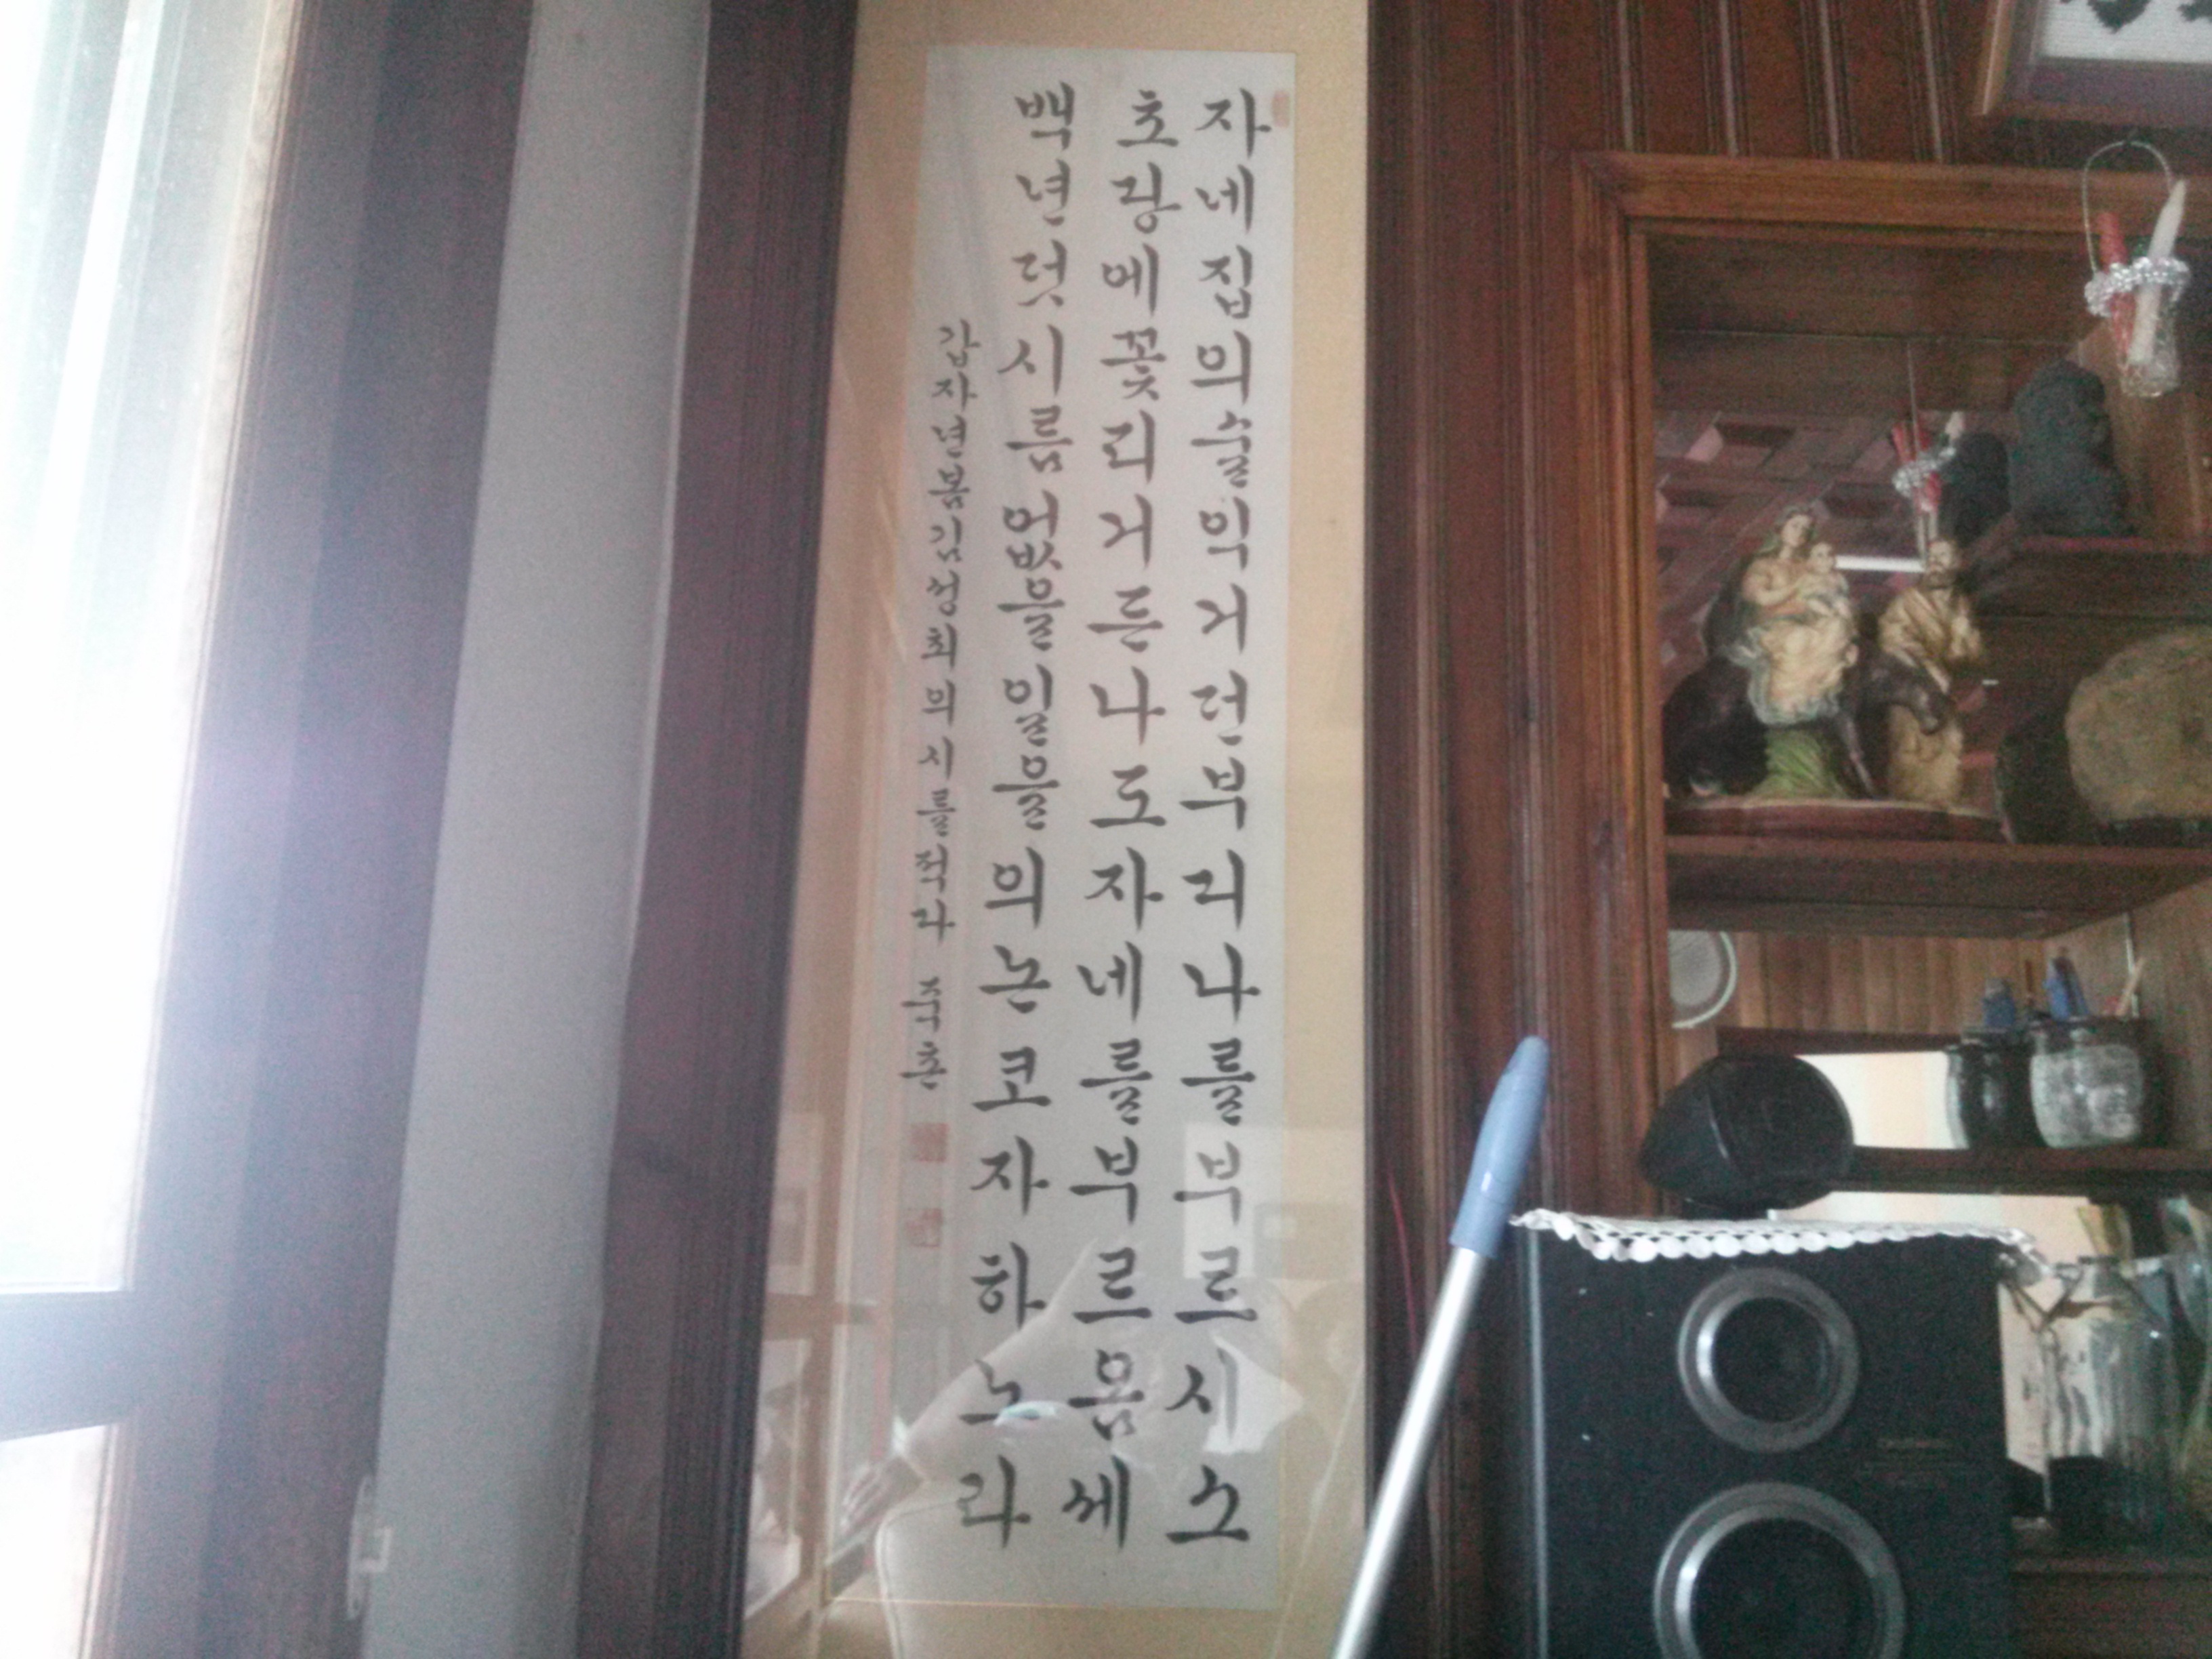 자네집의술익거던부리나를부르시소
초당에꽃리거든나도자네를부르옴세
백년덧시름없을일을의논코자하노라
갑자년봄김성최의시를적다 죽촌